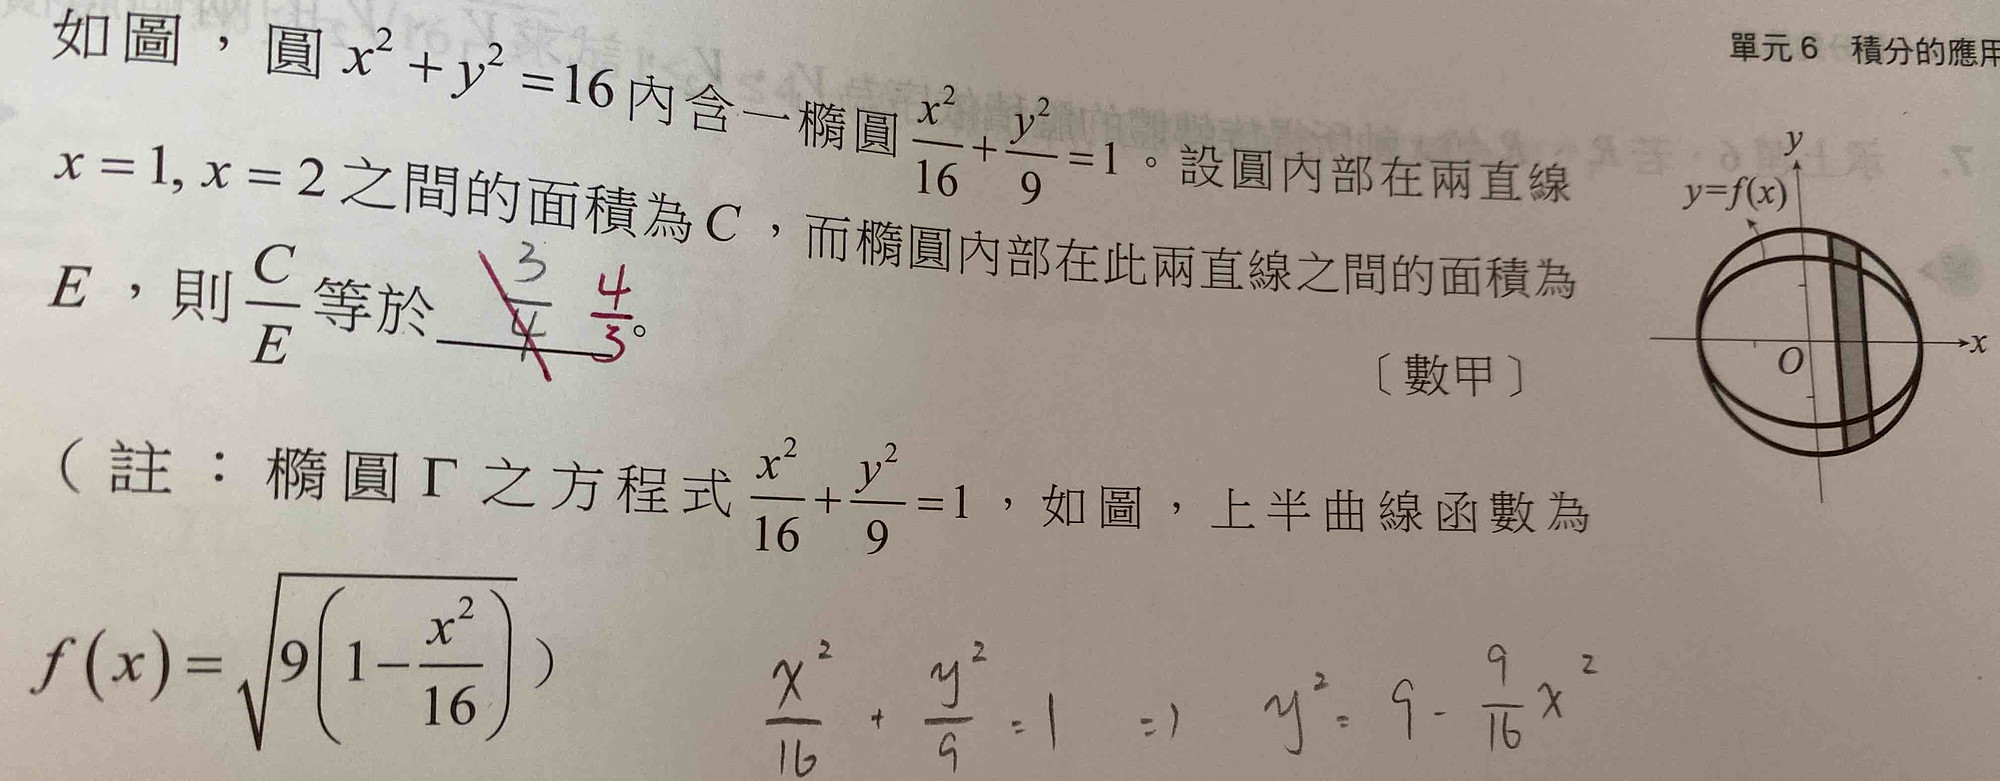 單元 6 積分的應用
如圖，圓 x² + y² = 16 內含一橢圓 x²/16 + y²/9 = 1。設圓內部在兩直線
x = 1, x = 2 之間的面積為 C，而橢圓內部在此兩直線之間的面積為
E，則 C/E 等於 3/4 4/3。
〔數甲〕
y
y=f(x)
O
x
（註：橢圓 Γ 之方程式 x²/16 + y²/9 = 1，如圖，上半曲線函數為
f(x) = √(9(1 − x²/16))）
x²/16 + y²/9 = 1 ⇒ y² = 9 - 9/16 x²